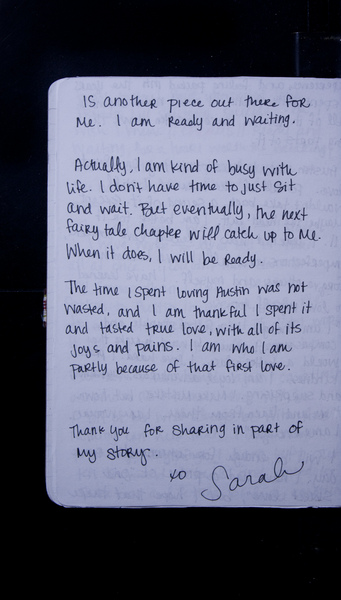 Is another piece out there for
Me. I am Ready and waiting.
Actually, I am kind of busy with
life. I don't have time to just sit
and wait. But eventually, the next
fairy tale chapter will catch up to Me.
When it does, I will be Ready.
The time I spent loving Austin was not
wasted, and I am thankful I spent it
and tasted true love, with all of its
Joys and pains. I am who I am
partly because of that first love.
Thank you for sharing in part of
My story.
xo Sarah